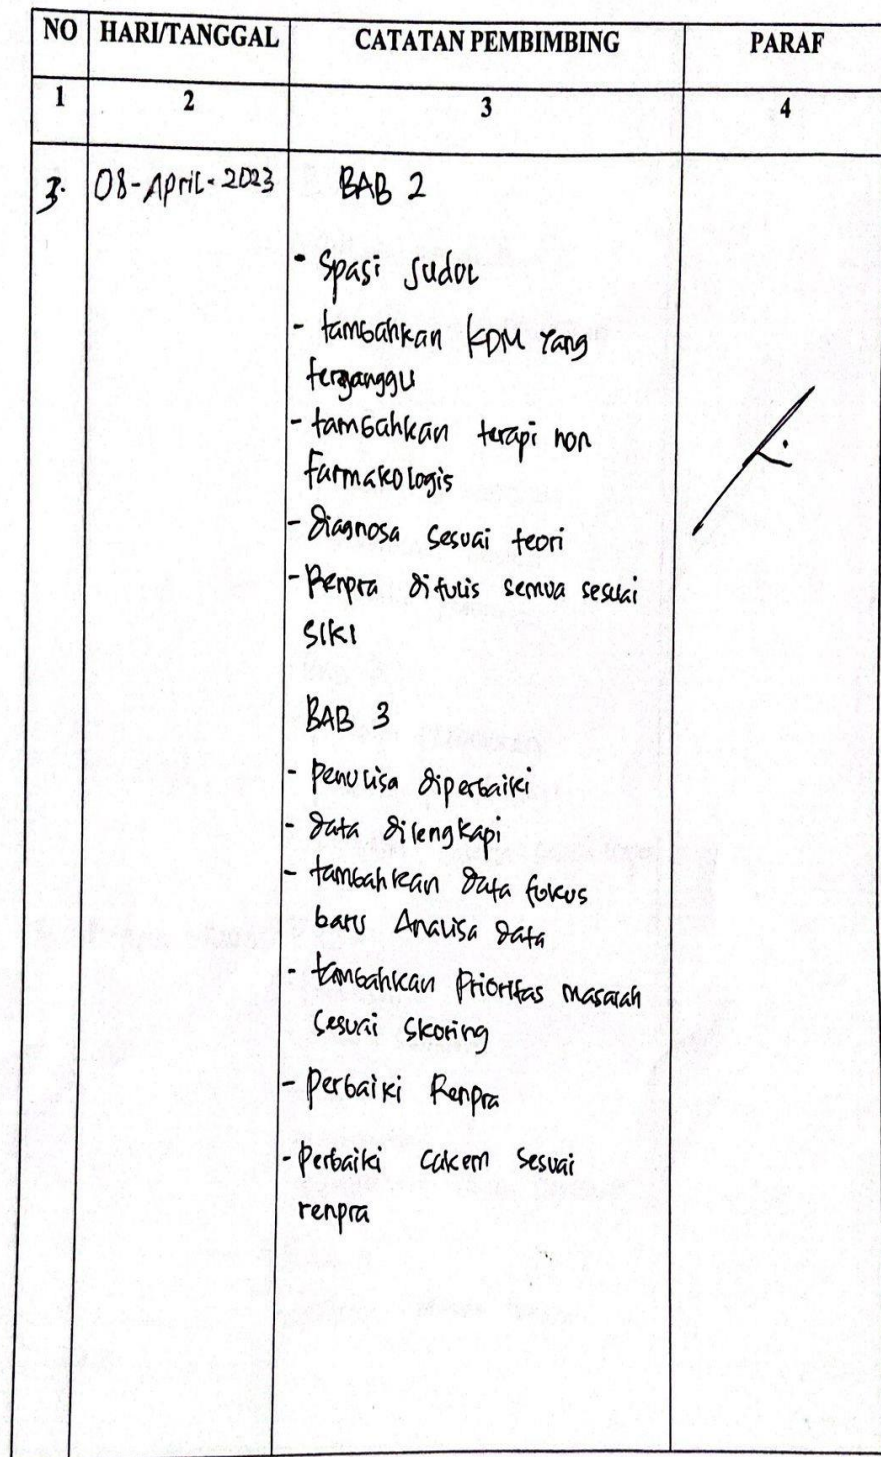 NO HARI/TANGGAL CATATAN PEMBIMBING PARAF
1 2 3 4
3. 08-April-2023 BAB 2
- Spasi Judul
- tambahkan KDM Yang
terganggu
- tambahkan terapi non
Farmakologis
- Diagnosa sesuai teori
- Renpra ditulis semua sesuai
SIKI
BAB 3
- Penulisa diperbaiki
- Data dilengkapi
- tambahkan Data fokus
baru Analisa Data
- tambahkan Prioritas masalah
Sesuai Skoring
- Perbaiki Renpra
- Perbaiki Cakem Sesuai
renpra